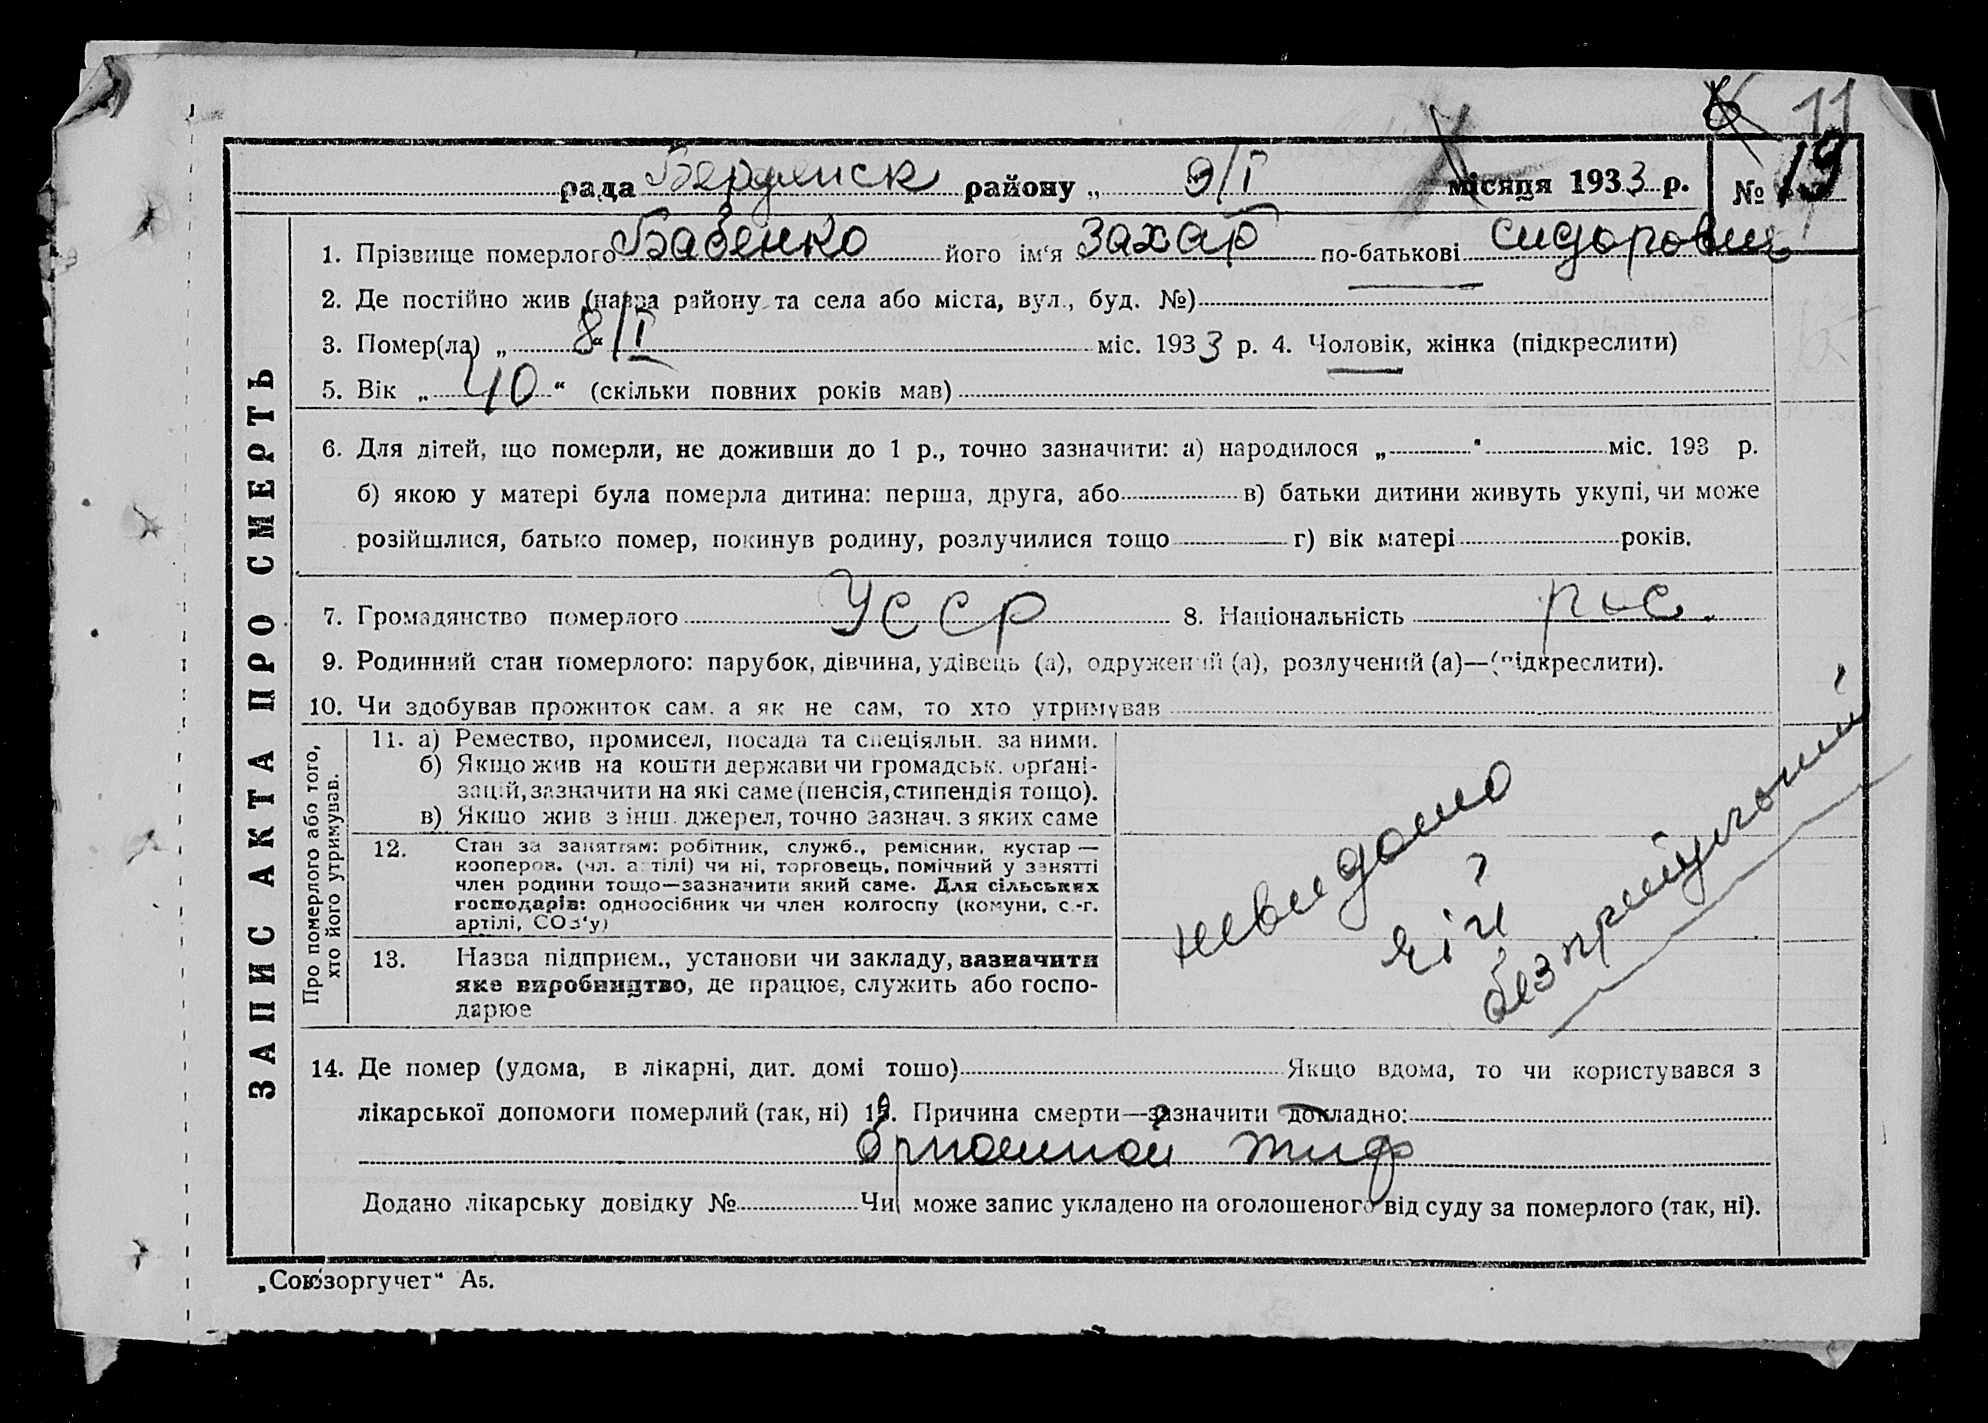 11
рада Бердянск району „ 9/I місяця 1933 р. № 19
1. Прізвище померлого Бабенко його ім‘я Захар по-батькові Сидорович
2. Де постійно жив (назва району та села або міста, вул., буд. №)
3. Помер(ла) „ 8 “ I міс. 1933 р. 4. Чоловік, жінка (підкреслити)
5. Вік „ 40 “ (скільки повних років мав)
6. Для дітей, що померли, не доживши до 1 р., точно зазначити: а) народилося „ “ міс. 193 р.
б) якою у матері була померла дитина: перша, друга, або в) батьки дитини живуть укупі, чи може
розійшлися, батько помер, покинув родину, розлучилися тощо г) вік матері років.
7. Громадянство померлого УССР 8. Національність рус.
9. Родинний стан померлого: парубок, дівчина, удівець (а), одружений (а), розлучений (а)—(підкреслити).
10. Чи здобував прожиток сам, а як не сам, то хто утримував
ЗАПИС АКТА ПРО СМЕРТЬ
Про померлого або того,
хто його утримував.
11. а) Ремество, промисел, посада та спеціяльн. за ними.
б) Якщо жив на кошти держави чи громадськ. орґані-
зацій, зазначити на які саме (пенсія, стипендія тощо).
в) Якшо жив з інш. джерел, точно зазнач. з яких саме
12. Стан за заняттям: робітник, служб., ремісник, кустар —
кооперов. (чл. артілі) чи ні, торговець, помічний у занятті
член родини тощо—зазначити який саме. Для сільських
господарів: одноосібник чи член колгоспу (комуни, с.-г.
артілі, СОЗ‘у)
13. Назва підприєм., установи чи закладу, зазначити
яке виробництво, де працює, служить або госпо-
дарює
невидомо
чій
?
безпритульний
14. Де помер (удома, в лікарні, дит. домі тошо) Якщо вдома, то чи користувався з
лікарської допомоги померлий (так, ні) 15. Причина смерти—зазначити докладно:
брюшной тиф
Додано лікарську довідку № Чи може запис укладено на оголошеного від суду за померлого (так, ні).
„Союзоргучет“ А5.